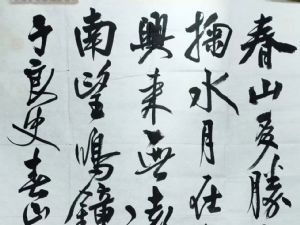 春山多勝
掬水月在
興來無遠
南望鳴鐘
于良史春山